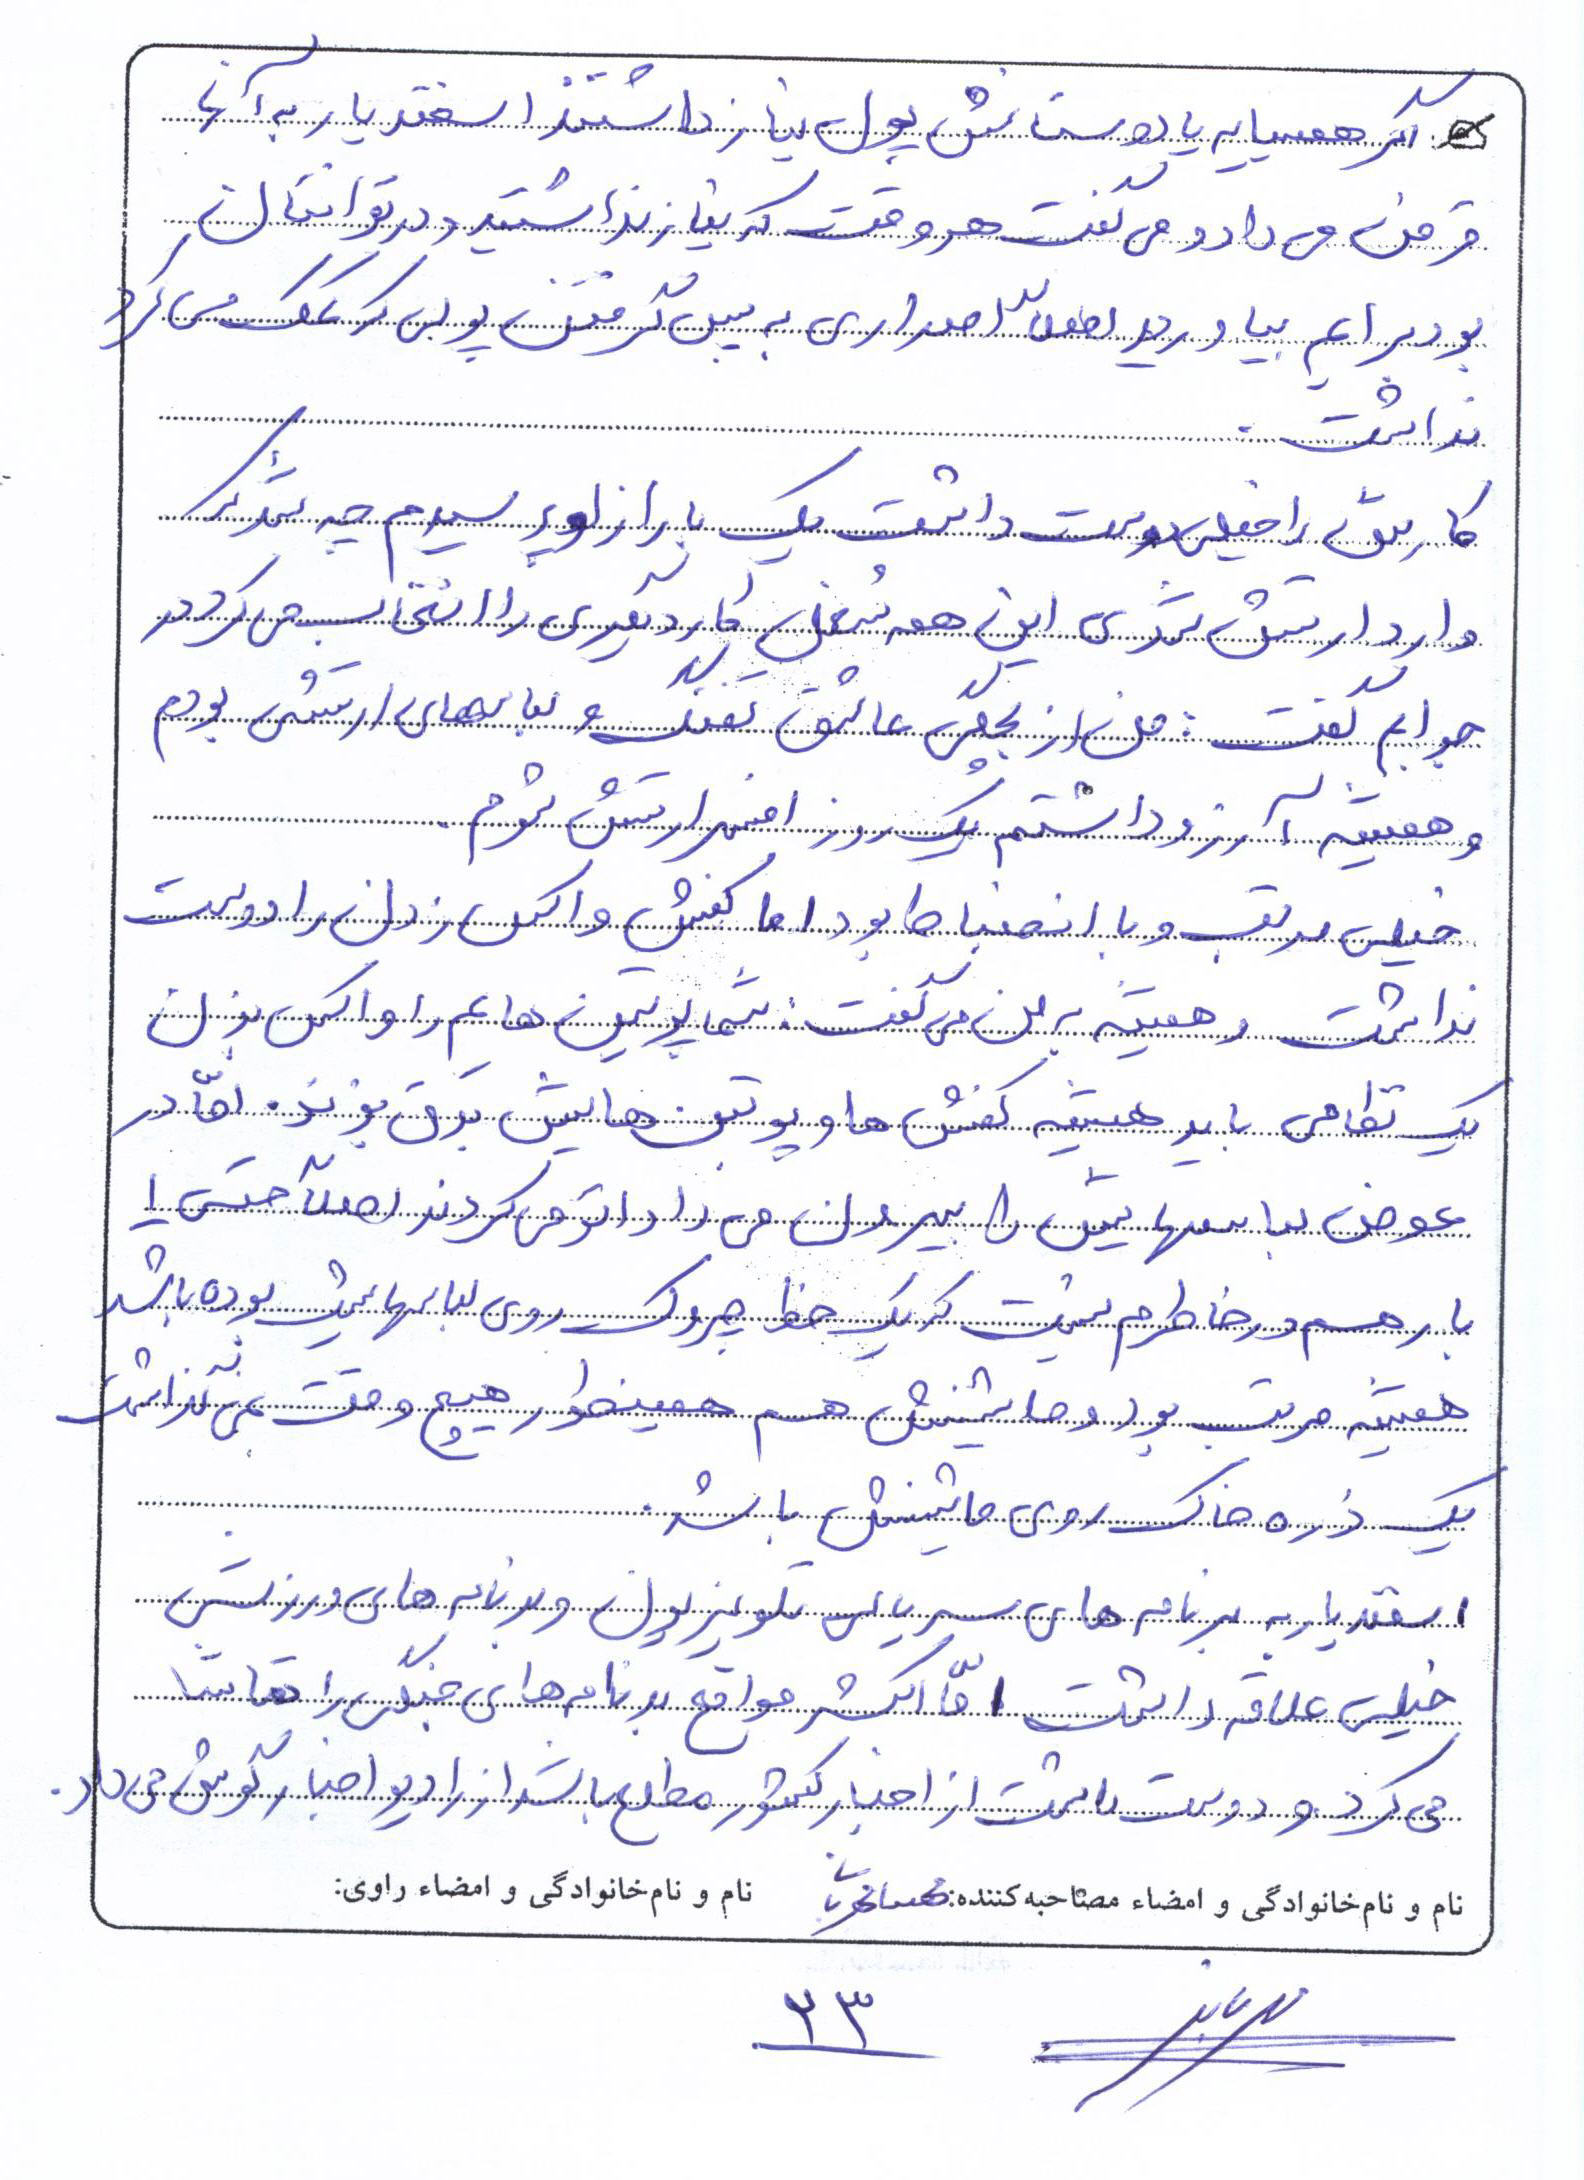 اگر همسایه یا دوستانش پول نیاز داشتند اسفندیار به آنها
قرض می داد و می گفت هر وقت که نیاز نداشتید و در توانتان
بود برایم بیاورید اصلاً اصراری به پس گرفتن پولی که کمک می کرد
نداشت.
کارش را خیلی دوست داشت یک بار از او پرسیدم چه شد که
وارد ارتش شدی این همه شغل کار دیگری را انتخاب می کردی در
جوابم گفت: من از بچگی عاشق تفنگ و لباسهای ارتشی بودم
و همیشه آرزو داشتم یک روز افسر ارتش شوم.
خیلی مرتب و با انضباط بود اما کفش واکس زدن را دوست
نداشت و همیشه به من می گفت: شما پوتین هایم را واکس بزن
یک نظامی باید همیشه کفش ها و پوتین هایش برق بزند. امّا در
عوض لباسهایش را بیرون می داد اتو می کردند اصلاً حتی ۱
بار هم در خاطرم نیست که یک خط چروک روی لباسهایش بوده باشد
همیشه مرتب بود و ماشینش هم همینطور هیچ وقت نمی گذاشت
یک ذره خاک روی ماشینش باشد.
اسفندیار به برنامه های سریالی تلویزیون و برنامه های ورزشی
خیلی علاقه داشت امّا اکثر مواقع برنامه های جنگی را تماشا
می کرد و دوست داشت از اخبار کشور مطلع باشد از رادیو اخبار گوش می داد.
نام و نام خانوادگی و امضاء مصاحبه کننده: نام و نام خانوادگی و امضاء راوی:
۲۳